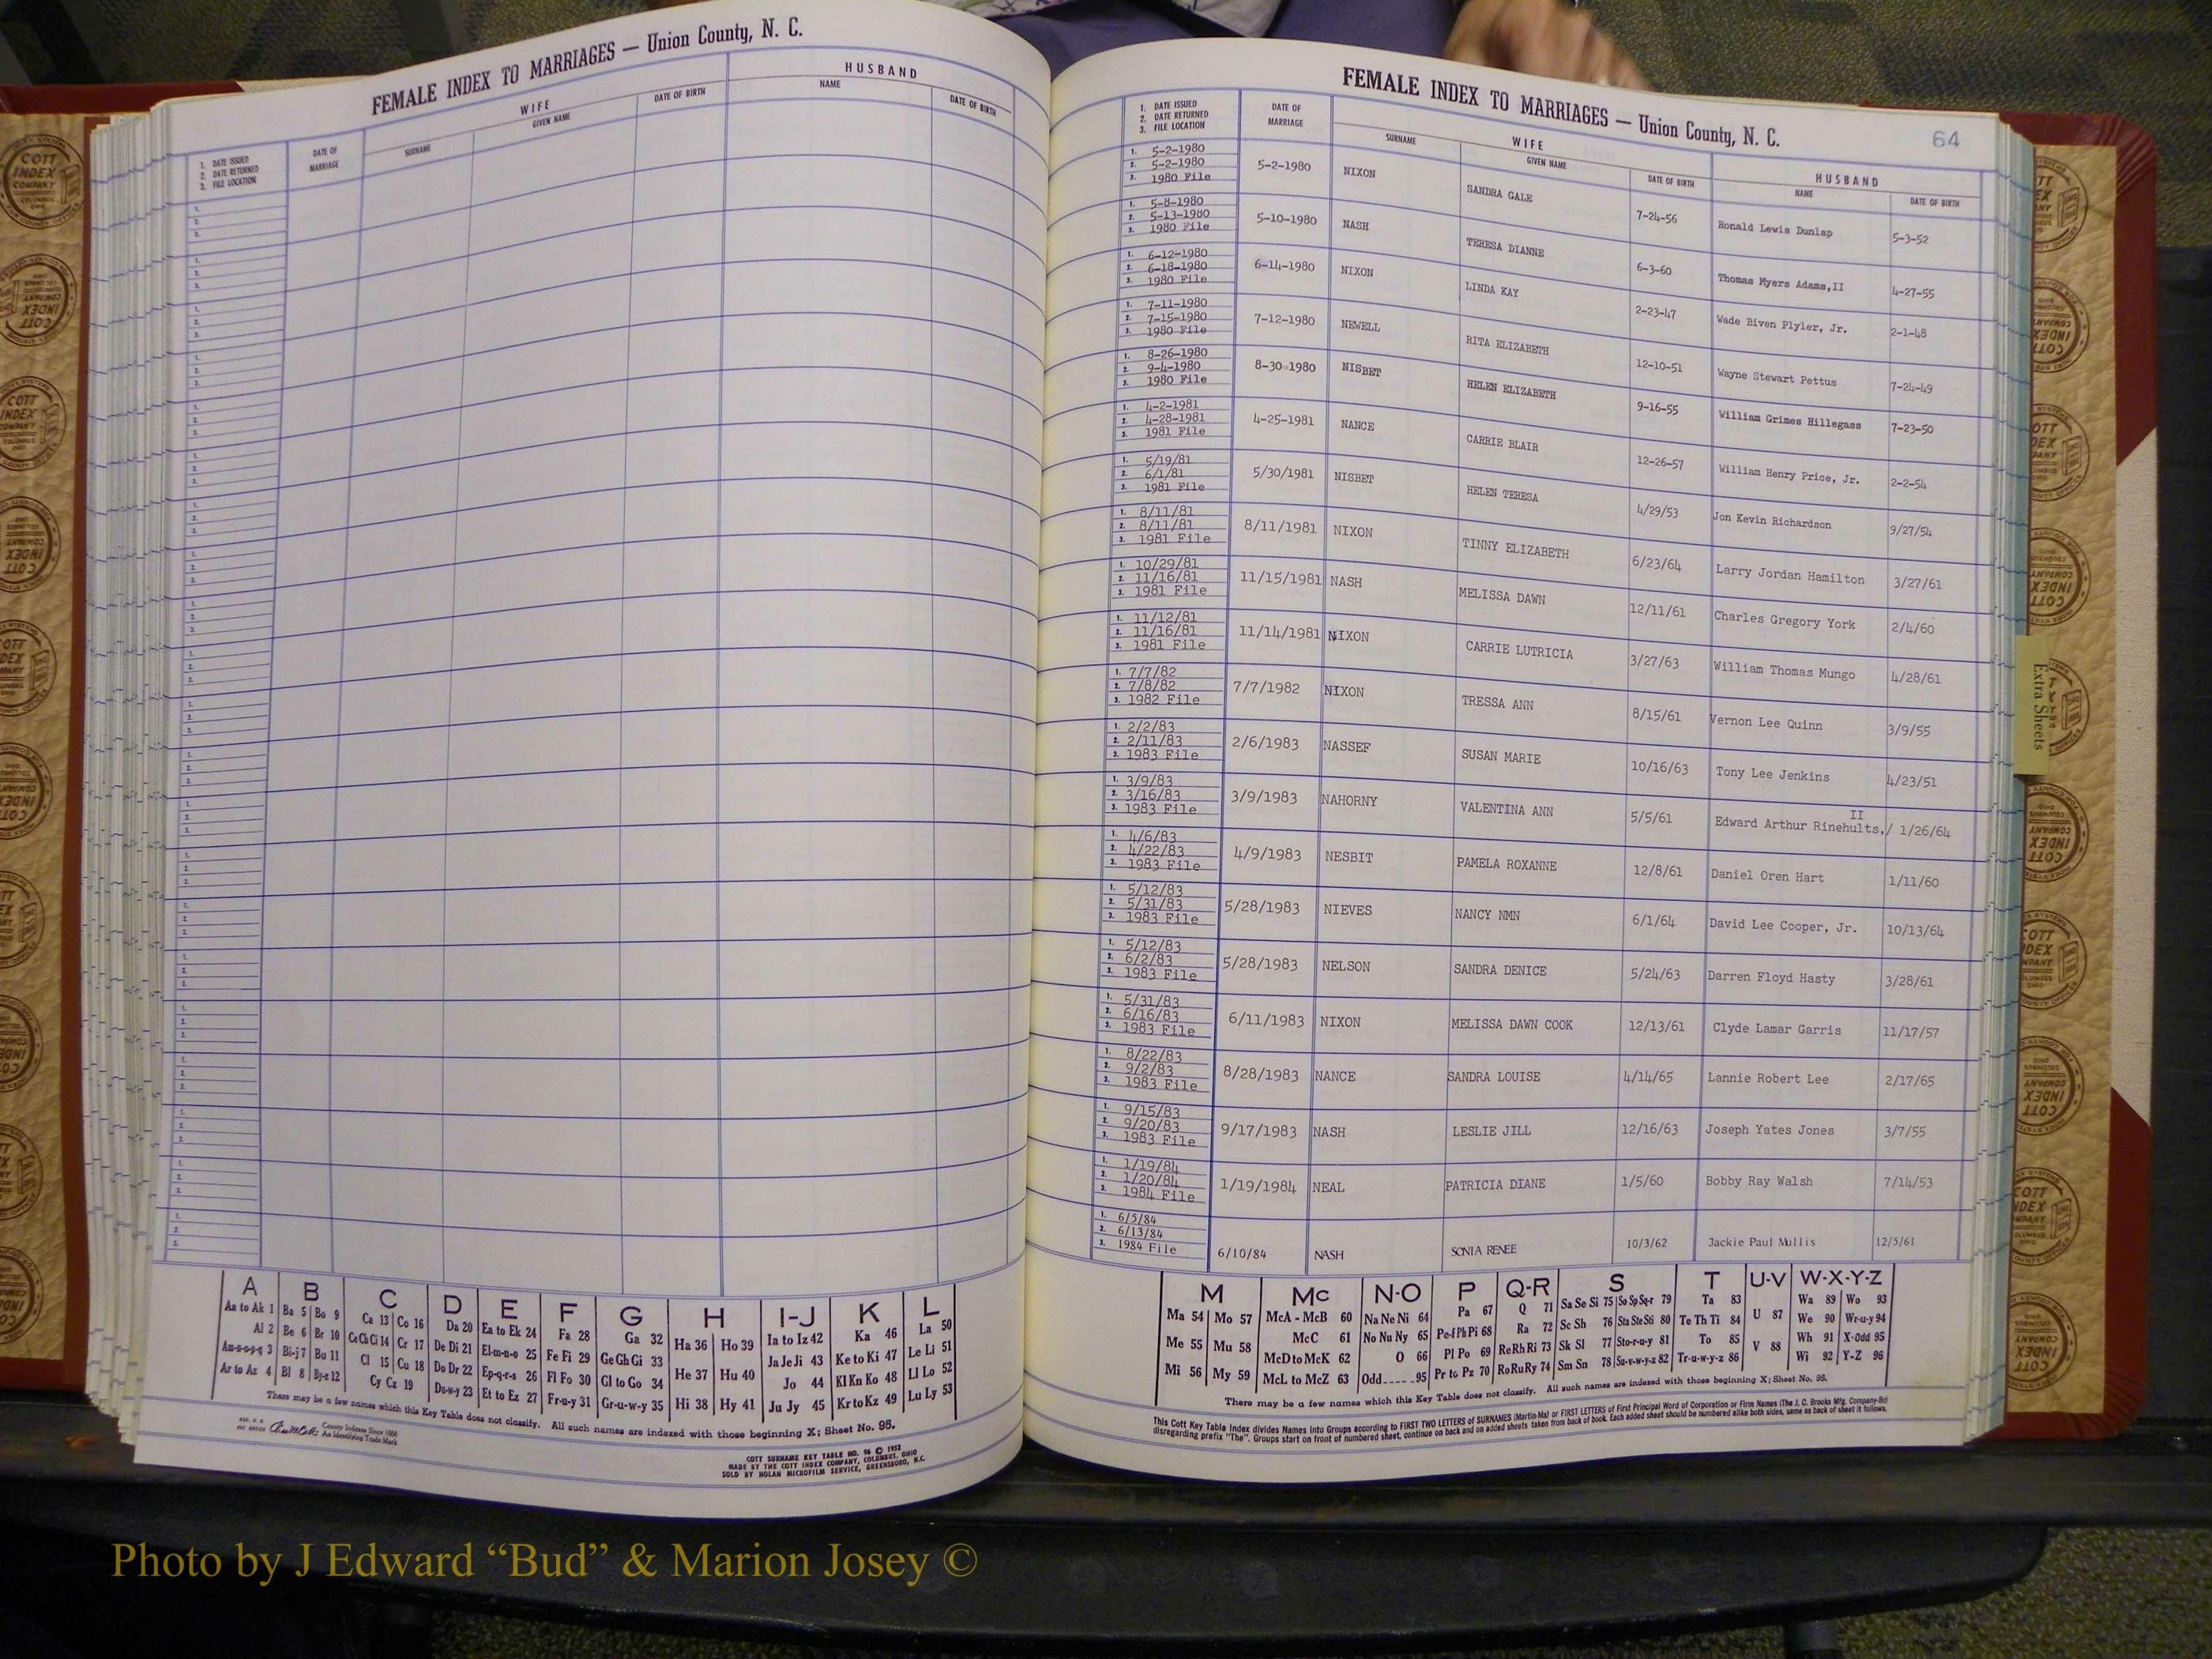 FEMALE INDEX TO MARRIAGES — Union County, N. C.
WIFE
HUSBAND
1. DATE ISSUED
2. DATE RETURNED
3. FILE LOCATION
DATE OF MARRIAGE
SURNAME
GIVEN NAME
DATE OF BIRTH
NAME
DATE OF BIRTH
A B C D E F G H I-J K L
Aa to Ak 1 Ba 5 Bo 9 Ca 13 Co 16 Da 20 Ea to Ek 24 Fa 28 Ga 32 Ha 36 Ho 39 Ia to Iz 42 Ka 46 La 50
Al 2 Be 6 Br 10 Ce Ch Ci 14 Cr 17 De Di 21 El-m-n-o 25 Fe Fi 29 Ge Gh Gi 33 Ja Je Ji 43 Ke to Ki 47 Le Li 51
Am-n-o-p-q 3 Bi-j 7 Bu 11 Cl 15 Cu 18 Do Dr 22 Ep-q-r-s 26 Fl Fo 30 Gl to Go 34 He 37 Hu 40 Jo 44 Kl Kn Ko 48 Ll Lo 52
Ar to Az 4 Bl 8 By-z 12 Cy Cz 19 Du-w-y 23 Et to Ez 27 Fr-u-y 31 Gr-u-w-y 35 Hi 38 Hy 41 Ju Jy 45 Kr to Kz 49 Lu Ly 53
There may be a few names which this Key Table does not classify. All such names are indexed with those beginning X; Sheet No. 95.
County Indexes Since 1888
An Identifying Trade Mark
COTT SURNAME KEY TABLE NO. 96 © 1952
MADE BY THE COTT INDEX COMPANY, COLUMBUS, OHIO
SOLD BY NOLAN MICROFILM SERVICE, GREENSBORO, N.C.
FEMALE INDEX TO MARRIAGES — Union County, N. C.
64
1. DATE ISSUED
2. DATE RETURNED
3. FILE LOCATION
DATE OF MARRIAGE
WIFE
SURNAME
GIVEN NAME
DATE OF BIRTH
HUSBAND
NAME
DATE OF BIRTH
1. 5-2-1980
2. 5-2-1980
3. 1980 File
5-2-1980 NIXON SANDRA GALE 7-24-56 Ronald Lewis Dunlap 5-3-52
1. 5-8-1980
2. 5-13-1980
3. 1980 File
5-10-1980 NASH TERESA DIANNE 6-3-60 Thomas Myers Adams,II 4-27-55
1. 6-12-1980
2. 6-18-1980
3. 1980 File
6-14-1980 NIXON LINDA KAY 2-23-47 Wade Biven Plyler, Jr. 2-1-48
1. 7-11-1980
2. 7-15-1980
3. 1980 File
7-12-1980 NEWELL RITA ELIZABETH 12-10-51 Wayne Stewart Pettus 7-24-49
1. 8-26-1980
2. 9-4-1980
3. 1980 File
8-30-1980 NISBET HELEN ELIZABETH 9-16-55 William Grimes Hillegass 7-23-50
1. 4-2-1981
2. 4-28-1981
3. 1981 File
4-25-1981 NANCE CARRIE BLAIR 12-26-57 William Henry Price, Jr. 2-2-54
1. 5/19/81
2. 6/1/81
3. 1981 File
5/30/1981 NISBET HELEN TERESA 4/29/53 Jon Kevin Richardson 9/27/54
1. 8/11/81
2. 8/11/81
3. 1981 File
8/11/1981 NIXON TINNY ELIZABETH 6/23/64 Larry Jordan Hamilton 3/27/61
1. 10/29/81
2. 11/16/81
3. 1981 File
11/15/1981 NASH MELISSA DAWN 12/11/61 Charles Gregory York 2/4/60
1. 11/12/81
2. 11/16/81
3. 1981 File
11/14/1981 NIXON CARRIE LUTRICIA 3/27/63 William Thomas Mungo 4/28/61
1. 7/7/82
2. 7/8/82
3. 1982 File
7/7/1982 NIXON TRESSA ANN 8/15/61 Vernon Lee Quinn 3/9/55
1. 2/2/83
2. 2/11/83
3. 1983 File
2/6/1983 NASSEF SUSAN MARIE 10/16/63 Tony Lee Jenkins 4/23/51
1. 3/9/83
2. 3/16/83
3. 1983 File
3/9/1983 NAHORNY VALENTINA ANN 5/5/61 Edward Arthur Rinehults,/ II 1/26/64
1. 4/6/83
2. 4/22/83
3. 1983 File
4/9/1983 NESBIT PAMELA ROXANNE 12/8/61 Daniel Oren Hart 1/11/60
1. 5/12/83
2. 5/31/83
3. 1983 File
5/28/1983 NIEVES NANCY NMN 6/1/64 David Lee Cooper, Jr. 10/13/64
1. 5/12/83
2. 6/2/83
3. 1983 File
5/28/1983 NELSON SANDRA DENICE 5/24/63 Darren Floyd Hasty 3/28/61
1. 5/31/83
2. 6/16/83
3. 1983 File
6/11/1983 NIXON MELISSA DAWN COOK 12/13/61 Clyde Lamar Garris 11/17/57
1. 8/22/83
2. 9/2/83
3. 1983 File
8/28/1983 NANCE SANDRA LOUISE 4/14/65 Lannie Robert Lee 2/17/65
1. 9/15/83
2. 9/20/83
3. 1983 File
9/17/1983 NASH LESLIE JILL 12/16/63 Joseph Yates Jones 3/7/55
1. 1/19/84
2. 1/20/84
3. 1984 File
1/19/1984 NEAL PATRICIA DIANE 1/5/60 Bobby Ray Walsh 7/14/53
1. 6/5/84
2. 6/13/84
3. 1984 File
6/10/84 NASH SONIA RENEE 10/3/62 Jackie Paul Mullis 12/5/61
M Mc N-O P Q-R S T U-V W-X-Y-Z
Ma 54 Mo 57 McA - McB 60 Na Ne Ni 64 Pa 67 Q 71 Sa Se Si 75 So Sp Sq-r 79 Ta 83 Wa 89 Wo 93
Me 55 Mu 58 McC 61 No Nu Ny 65 Pe-f Ph Pi 68 Ra 72 Sc Sh 76 Sta Ste Sti 80 Te Th Ti 84 U 87 We 90 Wr-u-y 94
McD to McK 62 O 66 Pl Po 69 Re Rh Ri 73 Sk Sl 77 Sto-r-u-y 81 To 85 V 88 Wh 91 X-Odd 95
Mi 56 My 59 McL to McZ 63 Odd 95 Pr to Pz 70 Ro Ru Ry 74 Sm Sn 78 Su-v-w-y-z 82 Tr-u-w-y-z 86 Wi 92 Y-Z 96
There may be a few names which this Key Table does not classify. All such names are indexed with those beginning X; Sheet No. 95.
This Cott Key Table Index divides Names Into Groups according to FIRST TWO LETTERS of SURNAMES (Martin-Ma) or FIRST LETTERS of First Principal Word of Corporation or Firm Names (The J. C. Brooks Mfg. Company-Br)
disregarding prefix "The". Groups start on front of numbered sheet, continue on back and on added sheets taken from back of book. Each added sheet should be numbered alike both sides, same as back of sheet it follows.
Extra Sheets
COTT INDEX COMPANY
Photo by J Edward “Bud” & Marion Josey ©